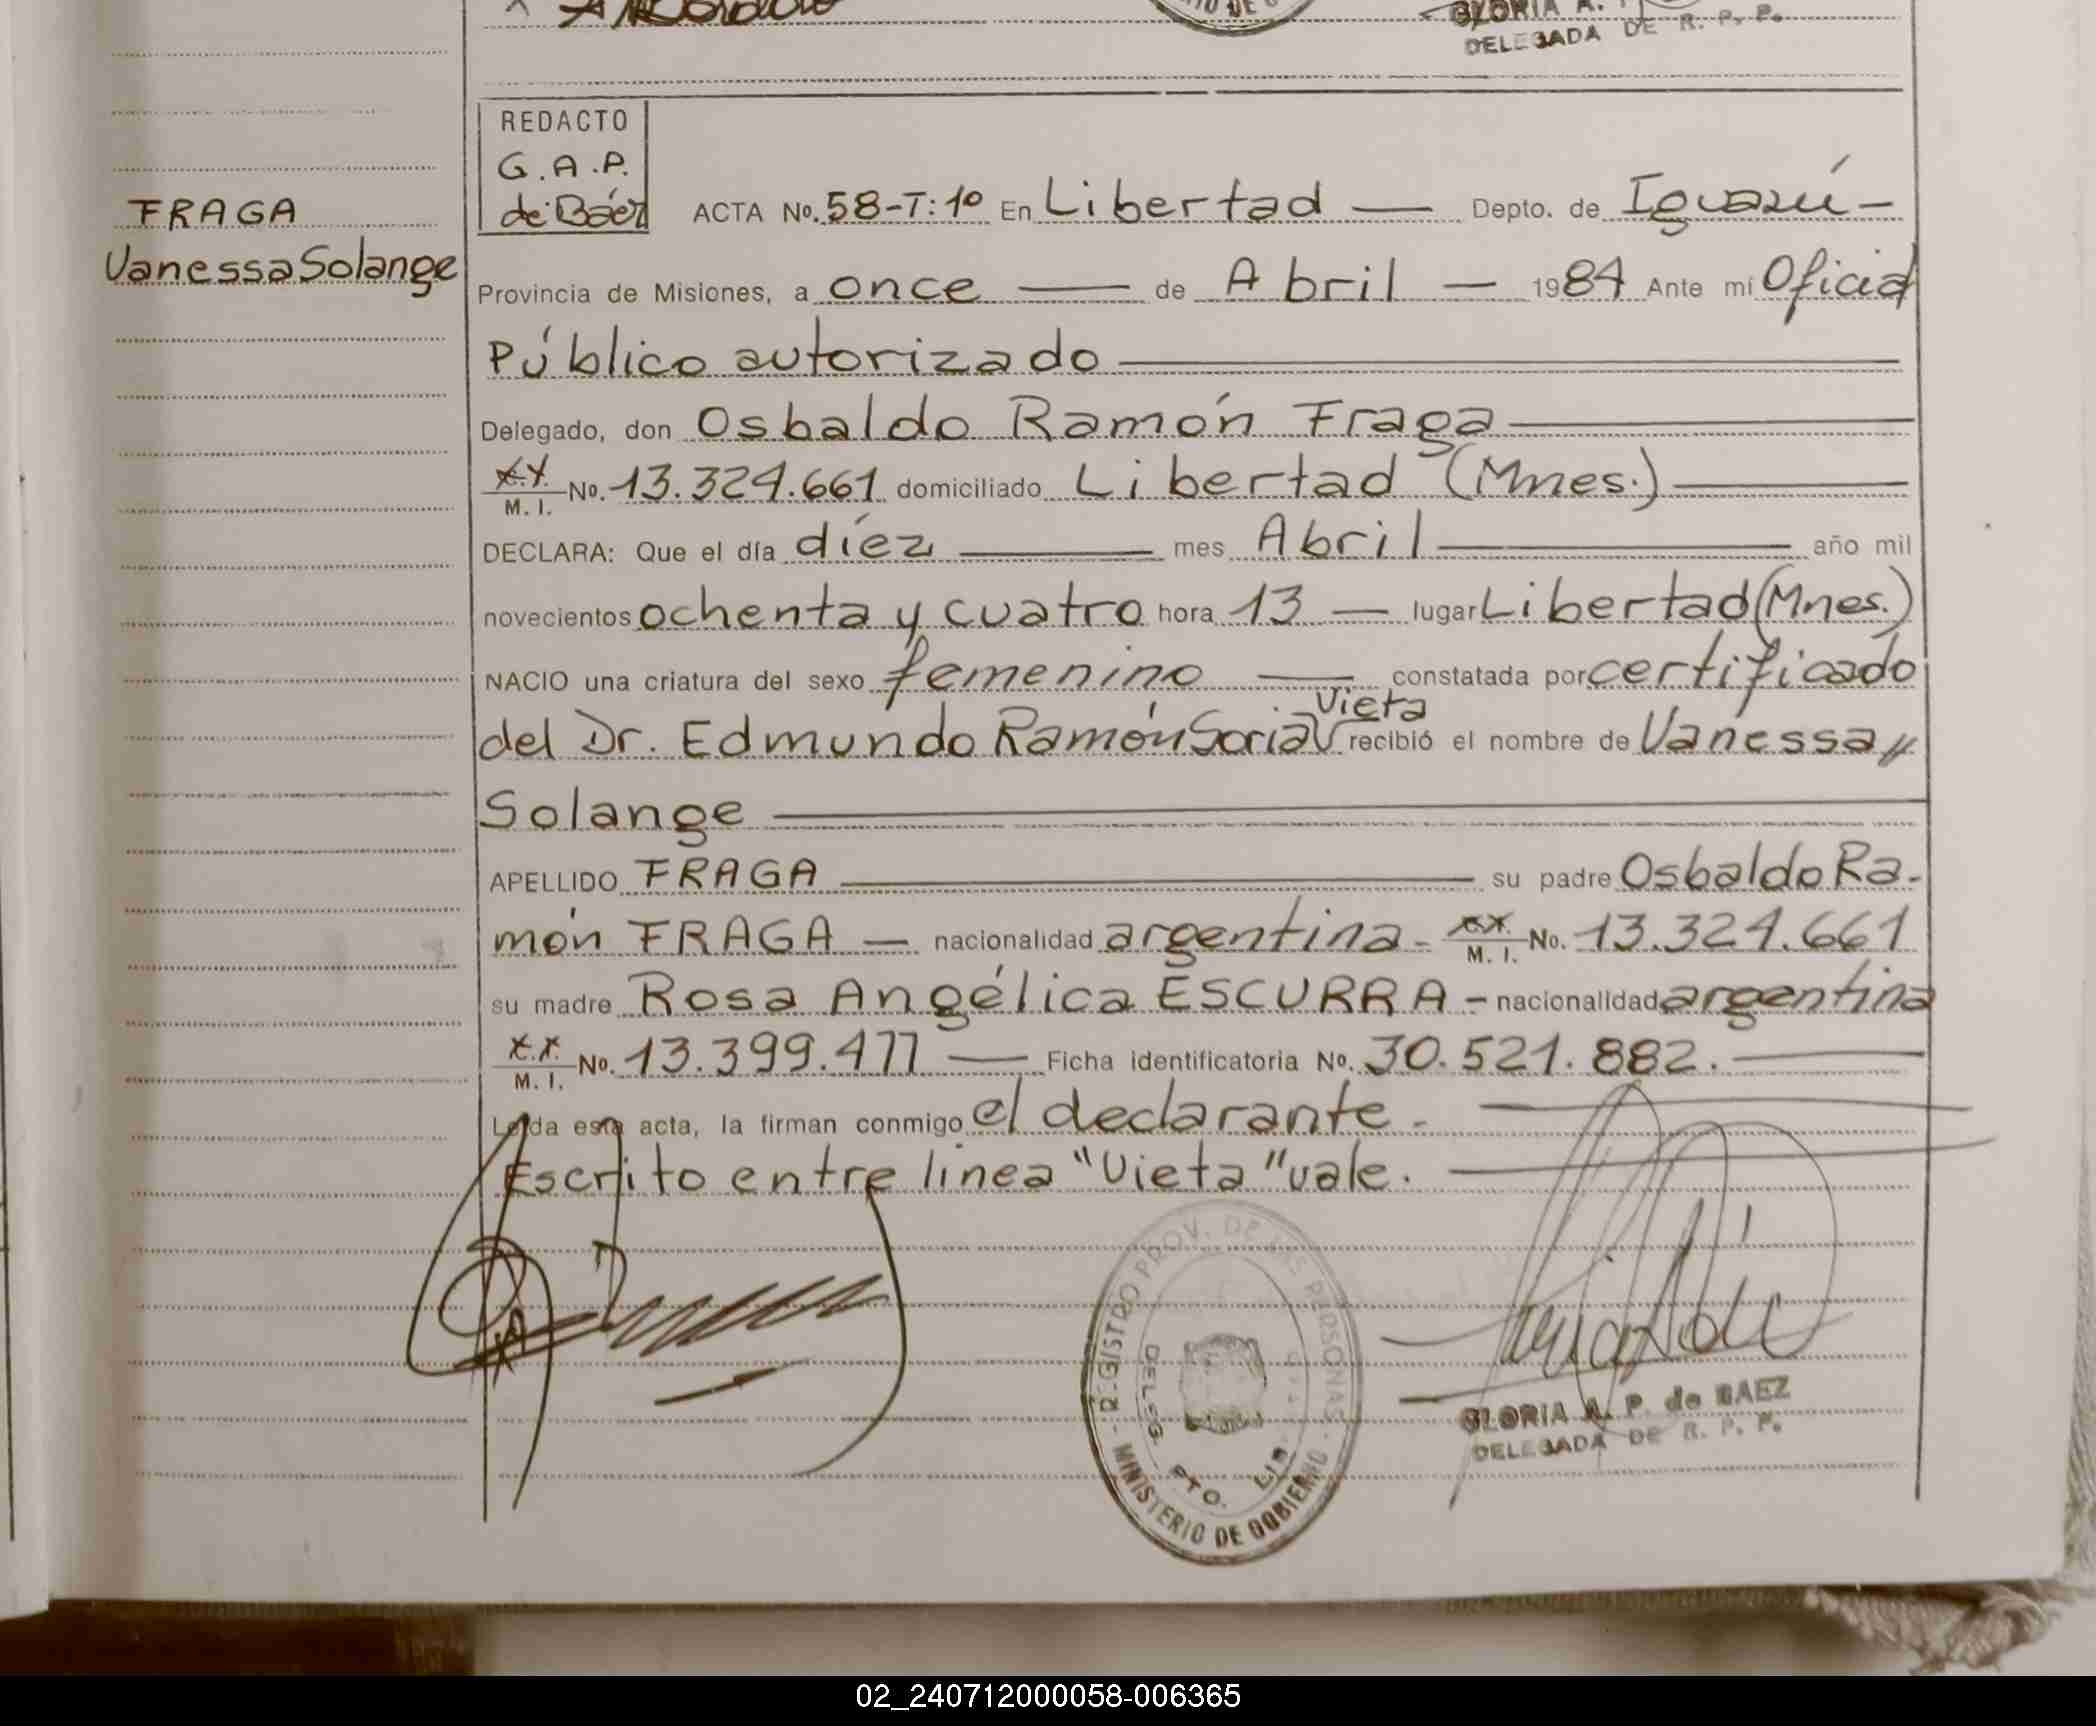 GLORIA A.
DELEGADA DE R. P. P.
REDACTO
G.A.P.
de Báez
FRAGA
Vanessa Solange
ACTA No. 58-T:1º En Libertad — Depto. de Iguazú -
Provincia de Misiones, a once — de Abril — 1984 Ante mí Oficial
Público autorizado
Delegado, don Osbaldo Ramón Fraga
M. I. No. 13.324.661 domiciliado Libertad (Mnes.)
DECLARA: Que el día díez — mes Abril — año mil
novecientos ochenta y cuatro hora 13 — lugar Libertad (Mnes.)
NACIO una criatura del sexo femenino — constatada por certificado
Vieta
del Dr. Edmundo Ramón Soria V recibió el nombre de Vanessa //
Solange
APELLIDO FRAGA — su padre Osbaldo Ra-
món FRAGA — nacionalidad argentina - xx. M. I. No. 13.324.661
su madre Rosa Angélica ESCURRA - nacionalidad argentina
x.x. M. I. No. 13.399.477 — Ficha identificatoria No. 30.521.882.
Leída esta acta, la firman conmigo el declarante.
Escrito entre línea "Vieta" vale.
REGISTRO PROV. DE LAS PERSONAS
MINISTERIO DE GOBIERNO
DELEG.
PTO. LIB.
GLORIA A. P. de BAEZ
DELEGADA DE R. P. P.
02_240712000058-006365